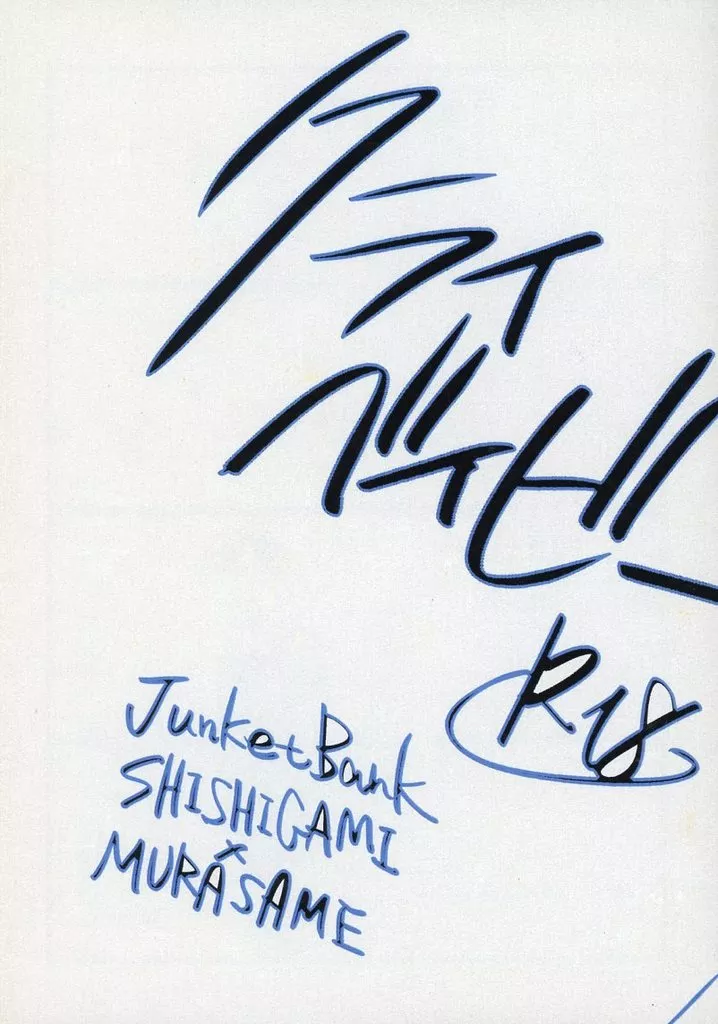 クライ
ベイビー
R18
JunketBank
SHISHIGAMI
×
MURASAME